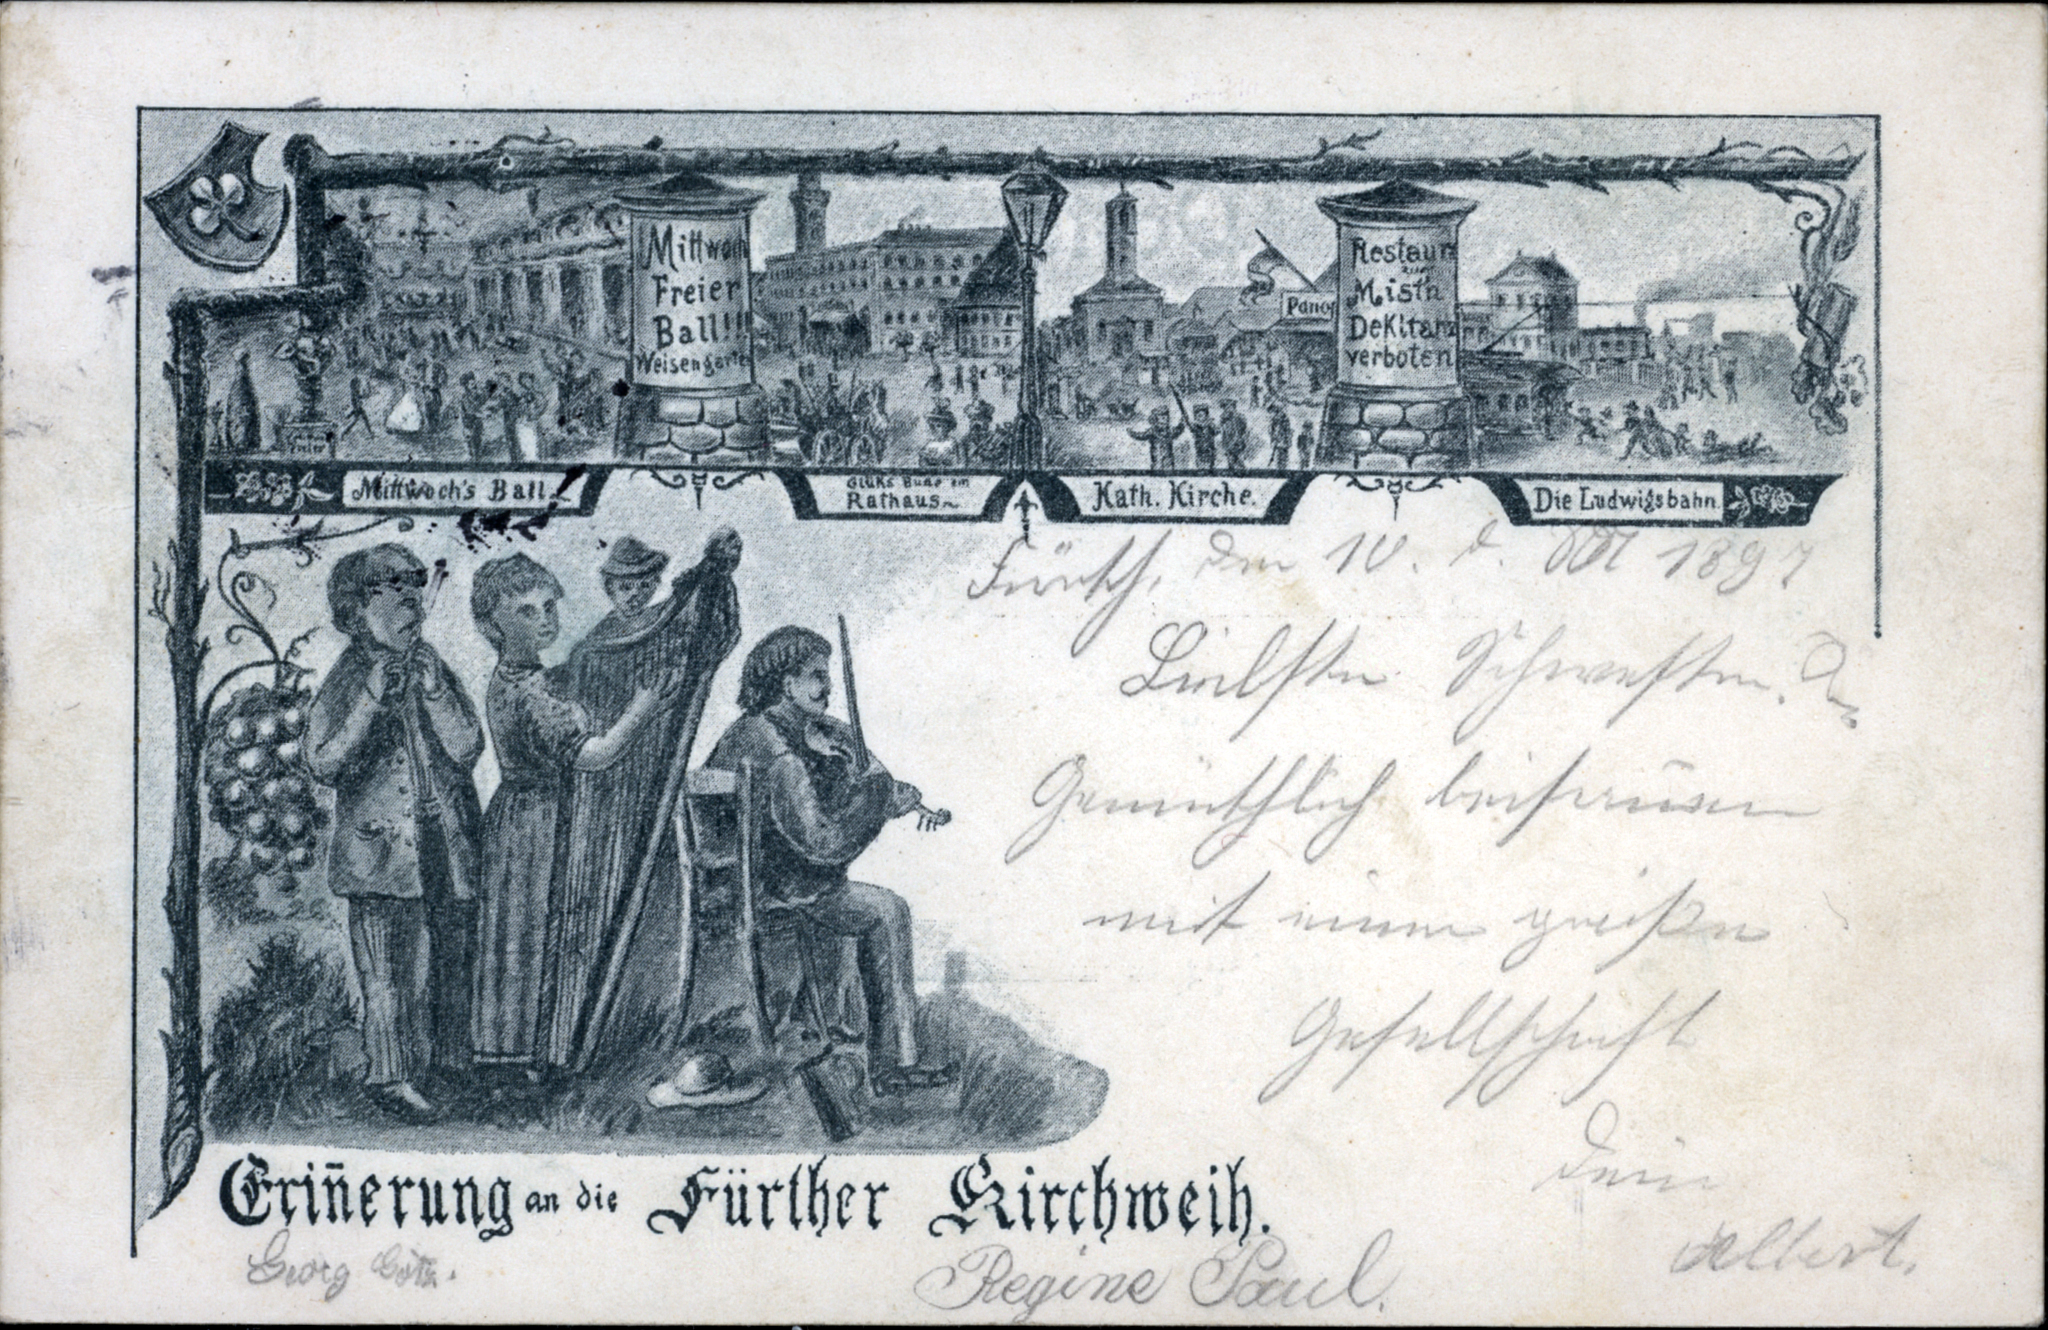 Mittwoch
Freier
Ball!!!
Weisengarten
Panor
Restaur
zur
Misth
DeKltanz
verboten
Mittwoch's Ball
Glüks Bude am
Rathaus
Kath. Kirche.
Die Ludwigsbahn
Fürth, den 10. d. Okt 1897
Liebste Schwester.
Gemüthlich beisamen
mit einer großen
Gesellschaft
Dein
Albert.
Erin̄erung an die Fürther Kirchweih.
Georg Götz.
Regine Paul.